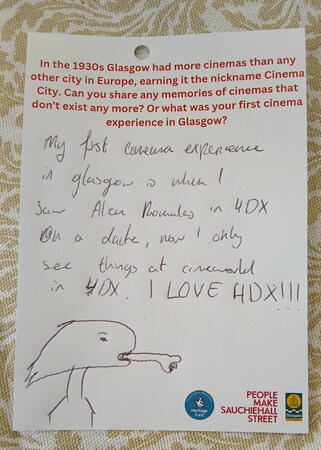 In the 1930s Glasgow had more cinemas than any
other city in Europe, earning it the nickname Cinema
City. Can you share any memories of cinemas that
don't exist any more? Or what was your first cinema
experience in Glasgow?
My first cinema experience
in glasgow is when I
saw Alien Romulus in 4DX
On a date, now I only
see things at cineworld
in 4DX. I LOVE 4DX!!!
Heritage
Fund
PEOPLE
MAKE
SAUCHIEHALL
STREET
Glasgow